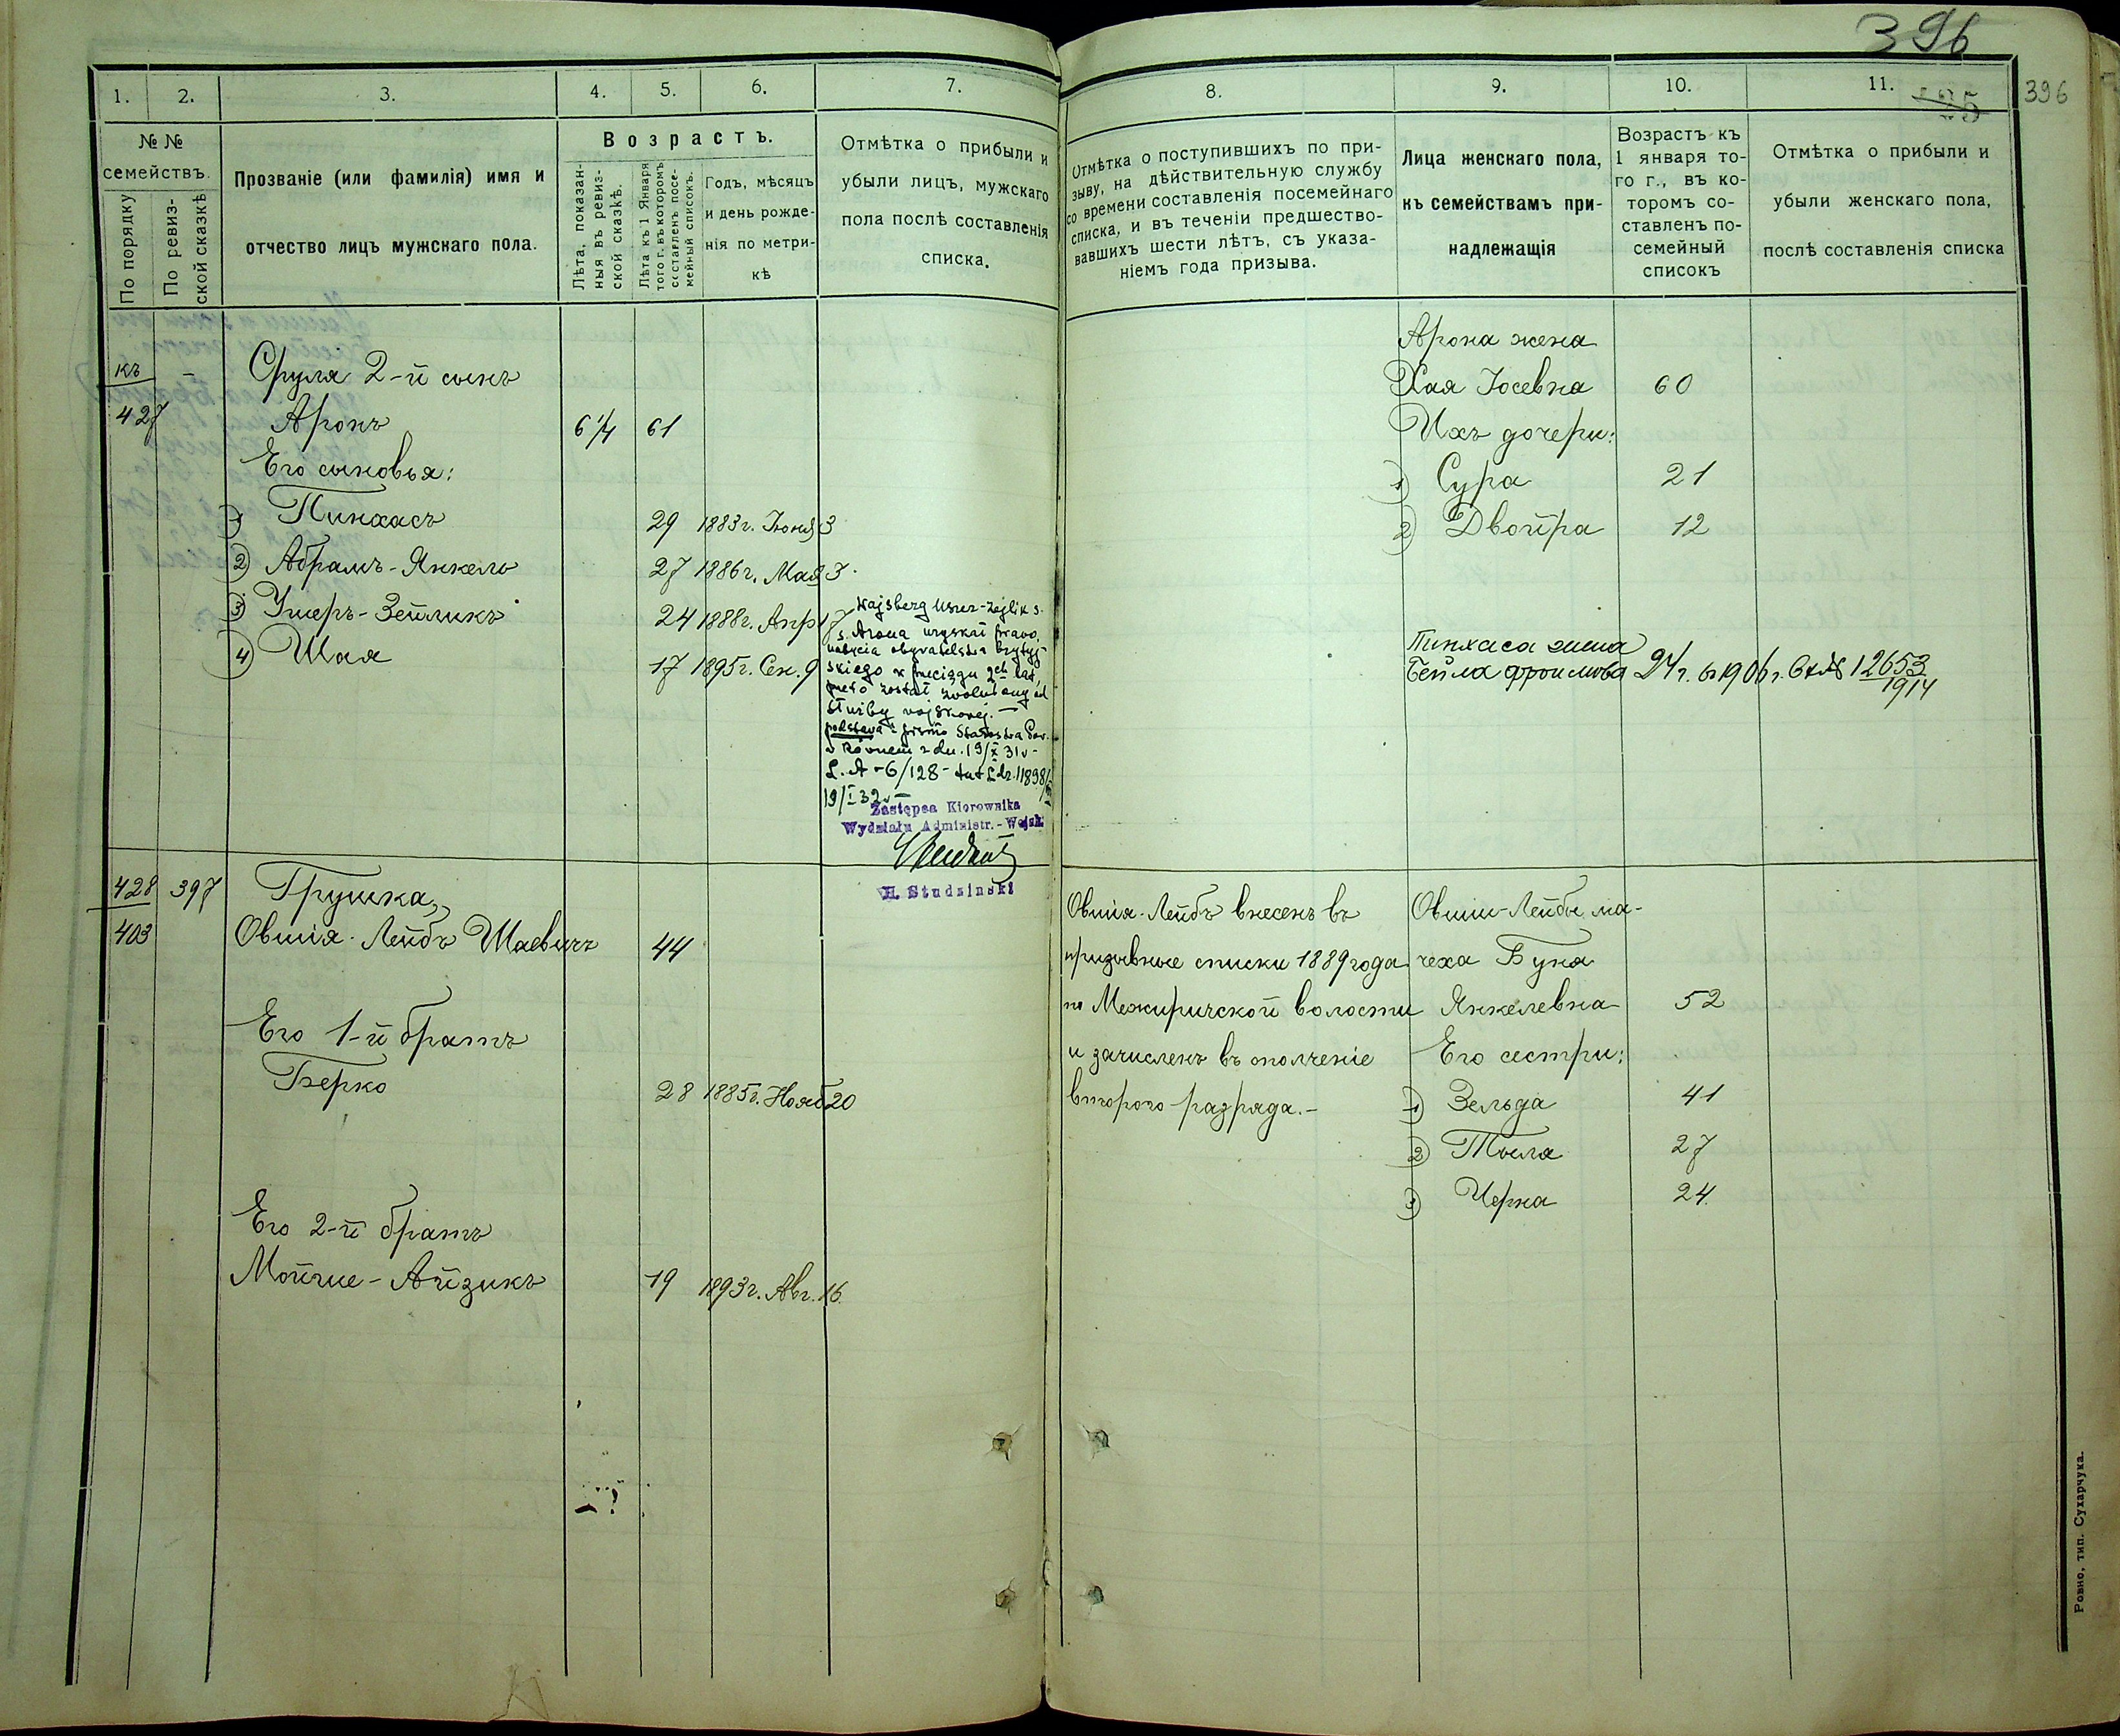 396
396
1. 2. 3. 4. 5. 6. 7.
№ №
семействъ.
По порядку
По ревиз-
ской сказкѣ
Прозваніе (или фамилія) имя и
отчество лицъ мужскаго пола.
Возрастъ.
Лѣта, показан-
ныя въ ревиз-
ской сказкѣ.
Лѣта къ 1 Января
того г. въ которомъ
составленъ посе-
мейный списокъ.
Годъ, мѣсяцъ
и день рожде-
нія по метри-
кѣ
Отмѣтка о прибыли и
убыли лицъ, мужскаго
пола послѣ составленія
списка.
къ - Сруля 2-й сынъ
427 Аронъ 61/4 61
Его сыновья:
1) Пинхасъ 29 1883г. Іюня 3
2) Абрамъ-Янкель 27 1886г. Мая 3
3) Ушеръ-Зейликъ 24 1888г. Апр 17
4) Шая 17 1895г. Сен. 9
Wajsberg Uszer-Zejlik s.
s. Arona uzyskał prawo
nabycia obywatelstwa brytyj-
skiego w przeciągu 2ch lat,
przeto został zwolniony od
służby wojskowej. —
podstawa: pismo Starostwa Pow.
w Równem z dn. 19/X 31 r -
L. A - 6/128 -
19/I 32 r —
Zastępca Kierownika
Wydziału Administr.-Wojsk.
H. Studzinski
428 397 Грушка,
403 Овшія-Лейбъ Шаевичъ 44
Его 1-й братъ
Берко 28 1885г. Нояб 20
Его 2-й братъ
Мойше-Айзикъ 19 1893г. Авг. 16
8. 9. 10. 11.
Отмѣтка о поступившихъ по при-
зыву, на дѣйствительную службу
со времени составленія посемейнаго
списка, и въ теченіи предшество-
вавшихъ шести лѣтъ, съ указа-
ніемъ года призыва.
Лица женскаго пола,
къ семействамъ при-
надлежащія
Возрастъ къ
1 января то-
го г., въ ко-
торомъ со-
ставленъ по-
семейный
списокъ
Отмѣтка о прибыли и
убыли женскаго пола,
послѣ составленія списка
Арона жена
Хая Іосевна 60
Ихъ дочери:
1) Сура 21
2) Двойра 12
Пинхаса жена
Бейла Фроимова 24 г. 1906 г. № 12653
1914
Овшія-Лейбъ внесенъ въ
призывные списки 1889 года
по Межиричской волости
и зачисленъ въ ополченіе
второго разряда. -
Овшіи-Лейбы ма-
чеха Буня
Янкелевна 52
Его сестри:
1) Зельда 41
2) Тыля 27
3) Черна 24
Ровно, тип. Сухарчука.